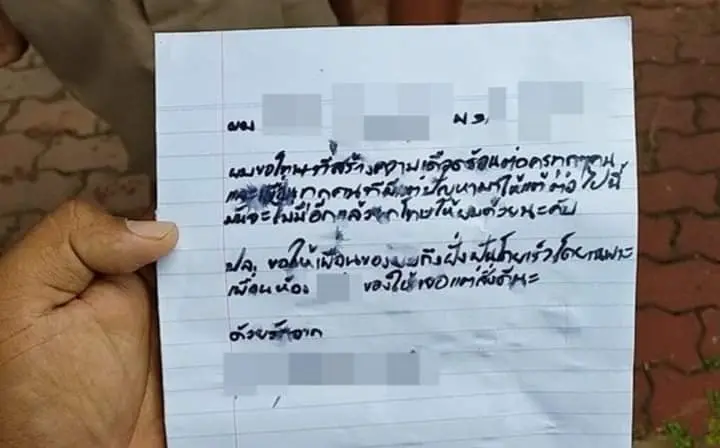 ผม ม.3/
ผมขอโทษที่สร้างความเดือดร้อนต่อครูทุกๆคน
และเพื่อนทุกคนที่มีแต่ปัญหามาให้แต่ต่อไปนี้
มันจะไม่มีอีกแล้ว โทษให้ผมด้วยนะคับ
ปล. ขอให้เพื่อนของผมถึงฝั่งฝันโดยเร็วโดยเฉพาะ
เพื่อนห้อง ขอให้เจอแต่สิ่งดีนะ
ด้วยรักจาก